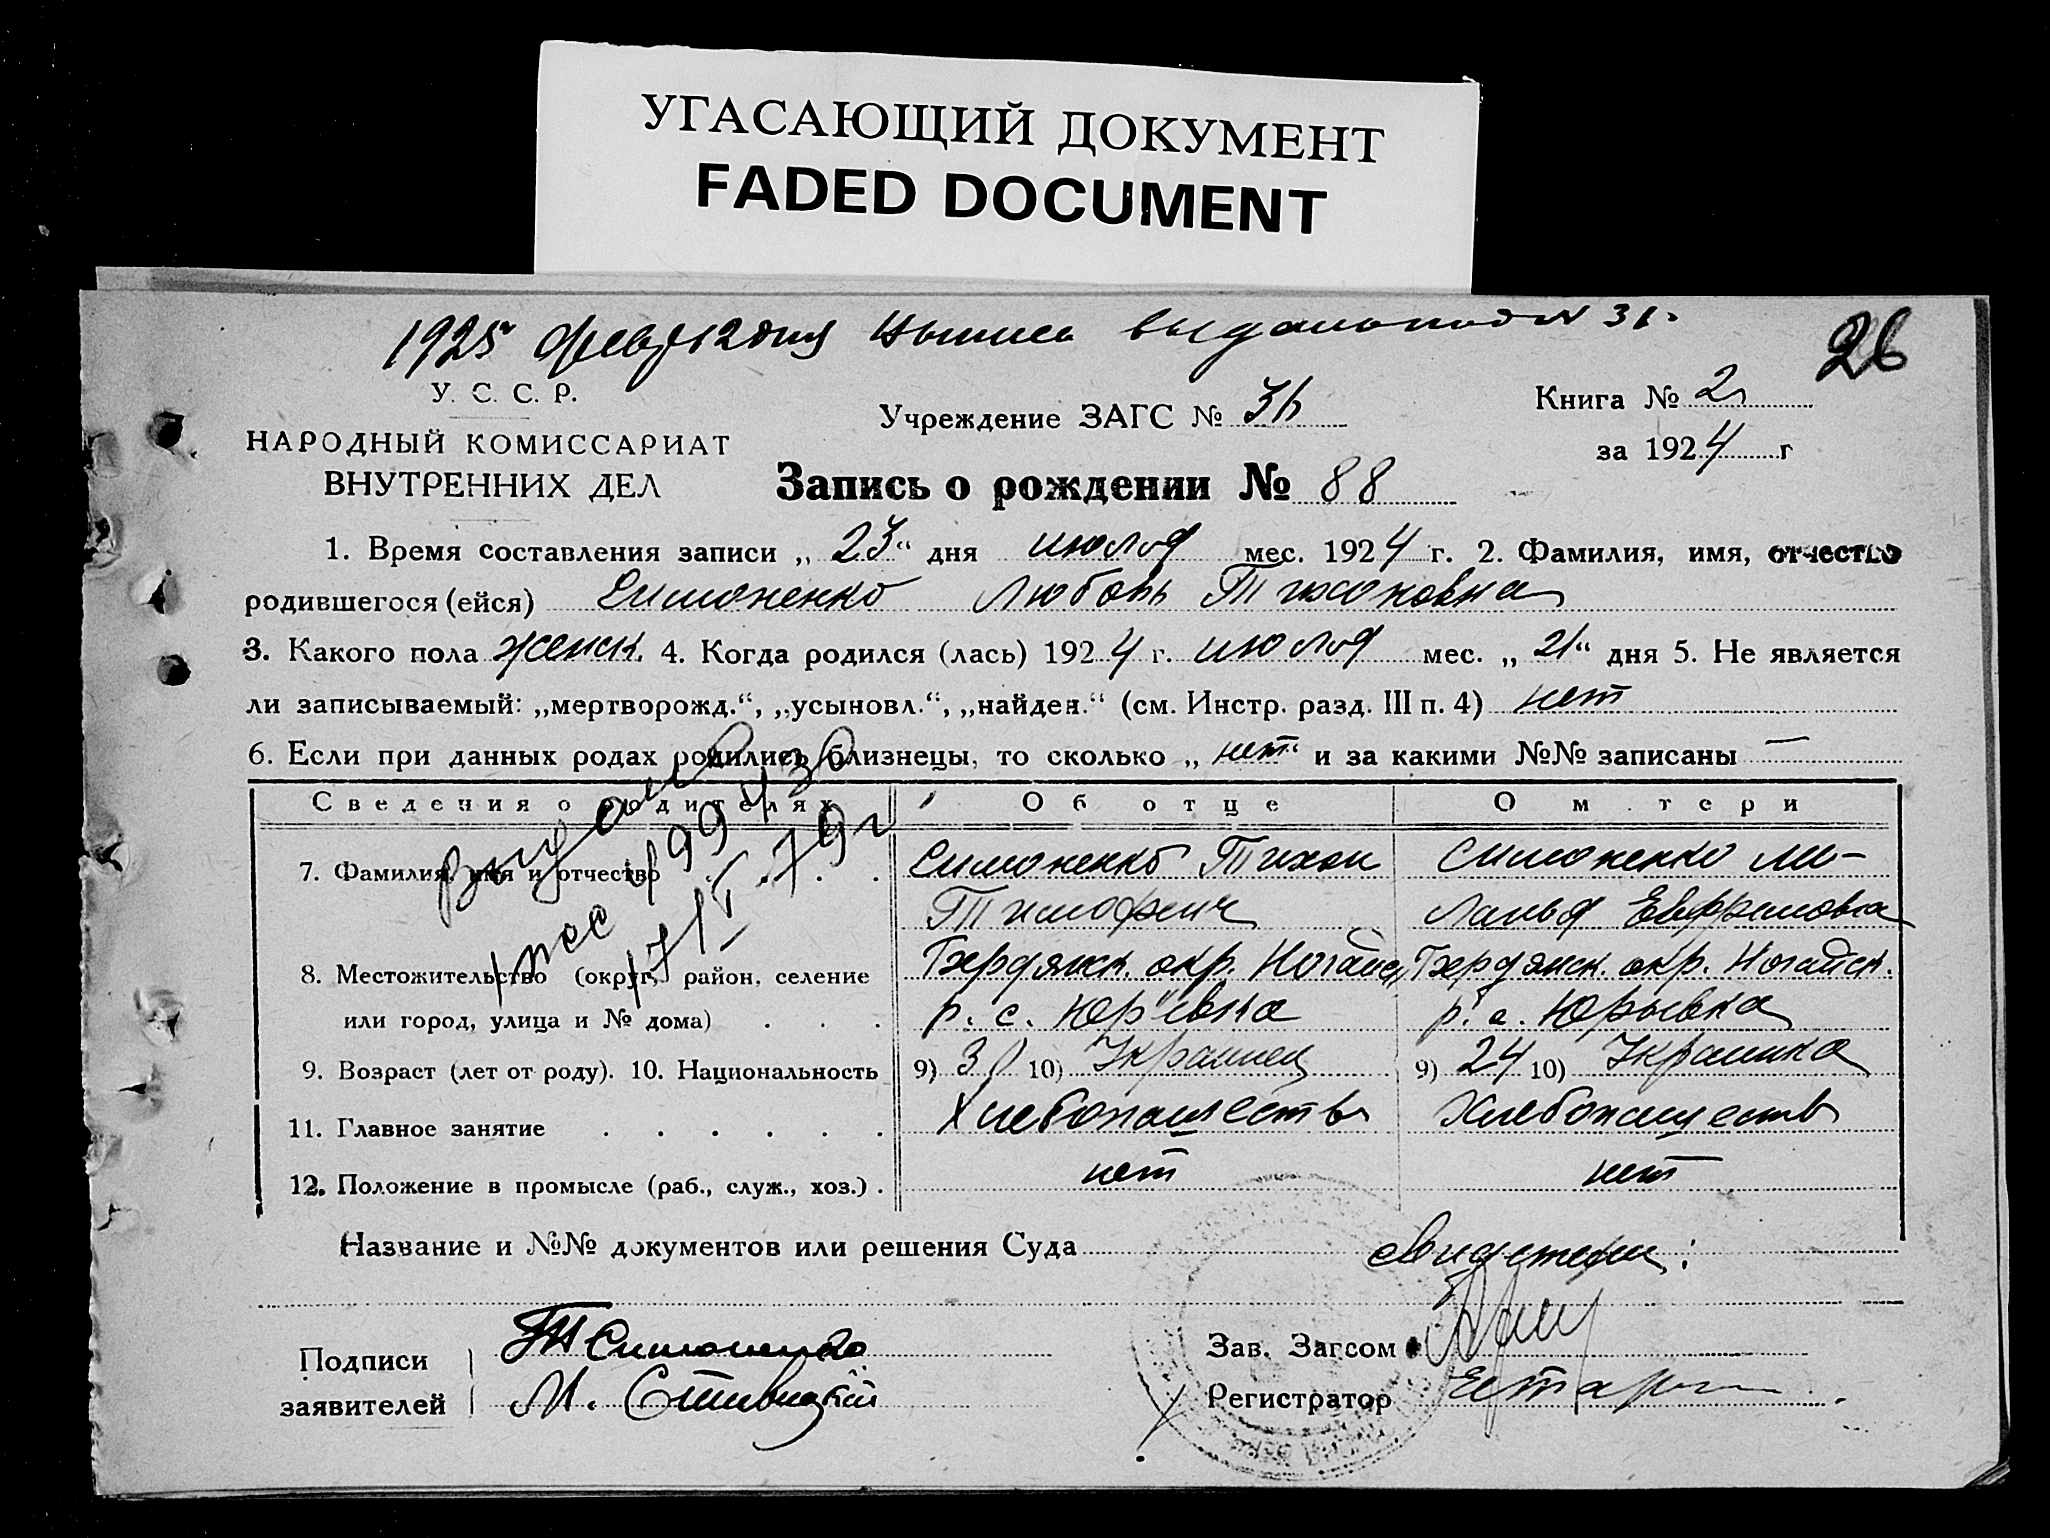 УГАСАЮЩИЙ ДОКУМЕНТ
FADED DOCUMENT
1925 февр 12 дня выпись выдана под № 31.
26
У. С. С. Р.
НАРОДНЫЙ КОМИССАРИАТ
ВНУТРЕННИХ ДЕЛ
Учреждение ЗАГС №
Книга № 2
за 1924 г
Запись о рождении № 88
1. Время составления записи „ 23 “ дня июля мес. 1924 г. 2. Фамилия, имя, отчество
родившегося (ейся) Симоненко Любовь Тихоновна
3. Какого пола женск. 4. Когда родился (лась) 1924 г. июля мес. „ 21 “ дня 5. Не является
ли записываемый: „мертворожд.“, „усыновл.“, „найден.“ (см. Инстр. разд. III п. 4) нет
6. Если при данных родах родились близнецы, то сколько „ нет “ и за какими №№ записаны —
Сведения о родителях Об отце О м тери
7. Фамилия, имя и отчество . . . Симоненко Тихон Симоненко Ме-
Тимофеич ланья Евфремовна
8. Местожительство (округ, район, селение Бердянск. окр. Ногайск. Бердянск. окр. Ногайск.
или город, улица и № дома) . . . р. с. Юр'евка р. с. Юрьевка
9. Возраст (лет от роду). 10. Национальность 9) 30 10) Украинец 9) 24 10) Украинка
11. Главное занятие . . . . . . Хлебопашество Хлебопашество
12. Положение в промысле (раб., служ., хоз.) . нет нет
Выдано
199430
17/V.79г
Название и №№ документов или решения Суда
свидетели:
Подписи
заявителей
Т Симоненко
М.
Зав. Загсом
Регистратор